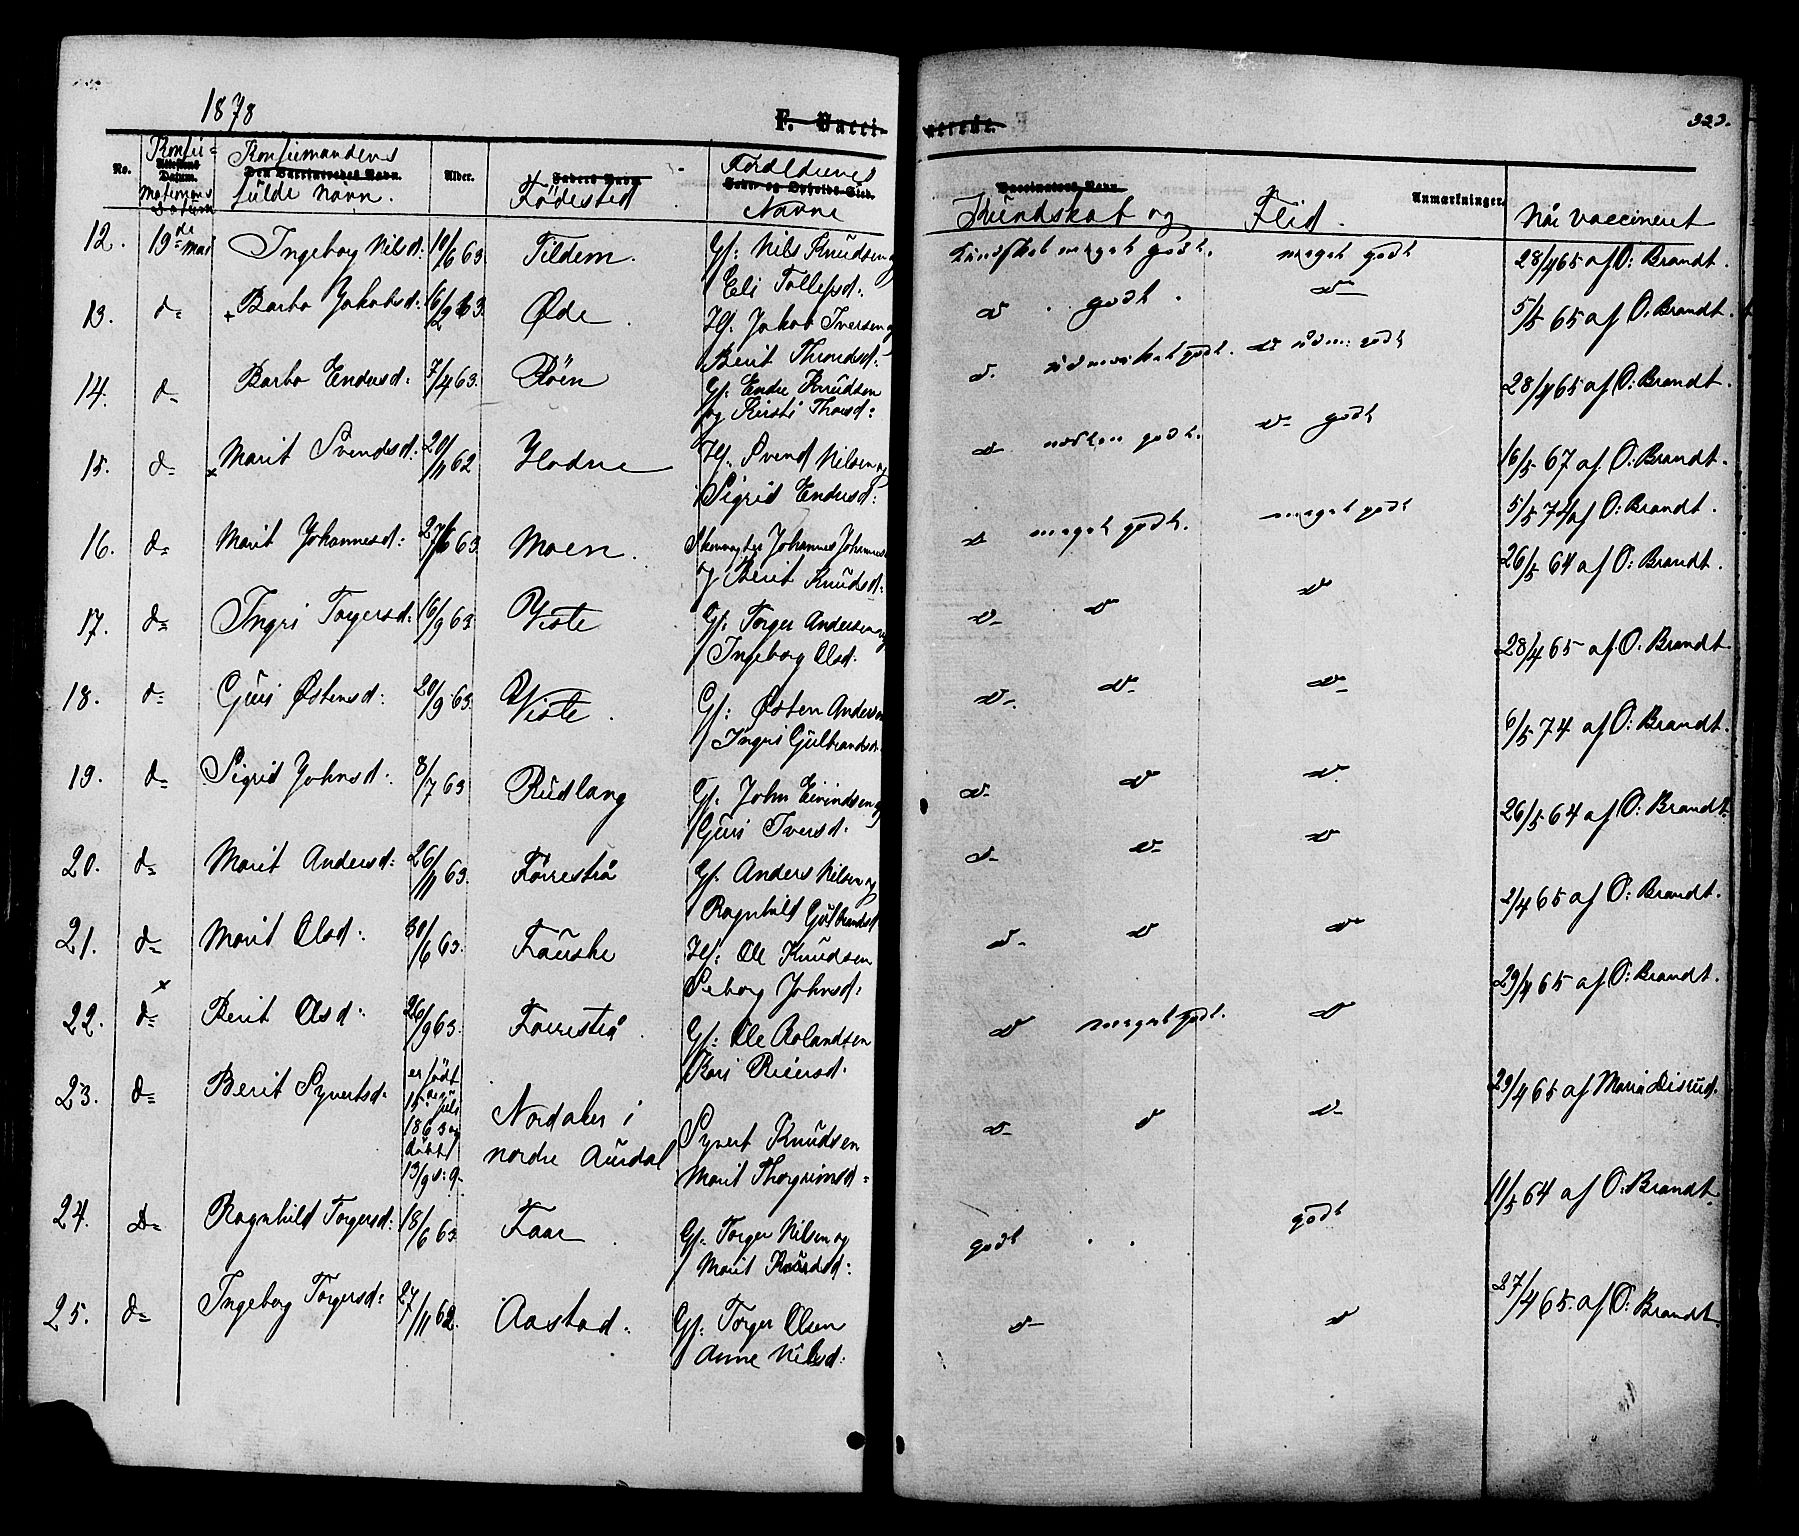 1878
F. Vacci- nerede. 323.
No. Konfir- Attestens Datum. mationens Datum
Konfirmandens Den Vaccineredes Navn. fulde Navn.
Alder.
Faders Navn Födested
Forældrenes Navne
Vaccinatorens Navn. Kundskab og Flid. Anmærkninger. Når vaccineret
12. 19de Mai Ingeborg Nilsd: 10/6 63 Fildem. Gf: Nils Knudsen og Kundskab meget godt. meget godt 28/4 65 af O: Brandt.
Eli Tollefsd:
13. d= + Barbo Jakobsd: 63. Øde. Hf. Jakob Iversen og d . godt . d= 5/5 65 af O. Brandt.
Berit Throndsd:
14. d= Barbo Endresd: 7/4 63. Röen Gf: Endre Knudsen d. udmærket godt. udm: godt 28/4 65 af O: Brandt.
og Kirsti Thorsd:
15. d= x Marit Svendsd: 20/11 62 Hodne Hf. Svend Nilsen og d- næsten godt. d- godt 16/5 67 af O: Brandt.
Sigrid Endresd:
5/5 74 af O: Brandt.
16. d= Marit Johannesd: 27/6 63 Moen. Johannes Johannes d meget godt. meget godt 26/5 64 af O: Brandt.
og Berit Knudsd:
17. d= Ingri Torgersd: 16/9 63 Viste Gf: Torger Andersen og d- d d 28/4 65 af O. Brandt.
Ingeborg Olsd.
18. d= Guri Østensd: 20/9 63 Viste. Gf: Østen Andersen d-. d- d- 6/5 74 af O: Brandt.
Ingri Gulbrandsd:
19. d= Sigrid Johnsd: 8/7 63 Rudlang Gf: John Eivindsen og d- d d 26/5 64 af O: Brandt.
Guri Iversd.
20. d= Marit Andersd: 26/11 63. Förrestrå Gf. Anders Nilsen og d- d- d 2/4 65 af O: Brandt.
Ragnhild Gulbrandsd
21. d= Marit Olsd: 30/6 63. Fauske Hf: Ole Knudsen d- d d 29/4 65 af O: Brandt.
Seborg Johnsd:
22. d= x Berit Olsd: 26/9 63. Forrestrå. Gf: Ole Rolandsen d meget godt. d
Kari Reiersd:
23. d= Berit Syvertsd: er födt 15de Juli 1863 og döbt 13/9 s: å. Nordaker i nordre Aurdal Syvert Knudsen d- d d- 29/4 65 af Maria Disrud.
Marit Thorgrimsd=
24. D= Ragnhild Torgersd: 18/6 63 Faar. Gf: Torger Nilsen og godt . . godt 11/5 64 af O: Brandt.
Marit Knudsd:
25. d= Ingeborg Torgersd: 27/11 62. Aastad. Gf: Torger Olsen d- d 27/4 65. af O: Brandt.
Anne Nilsd: